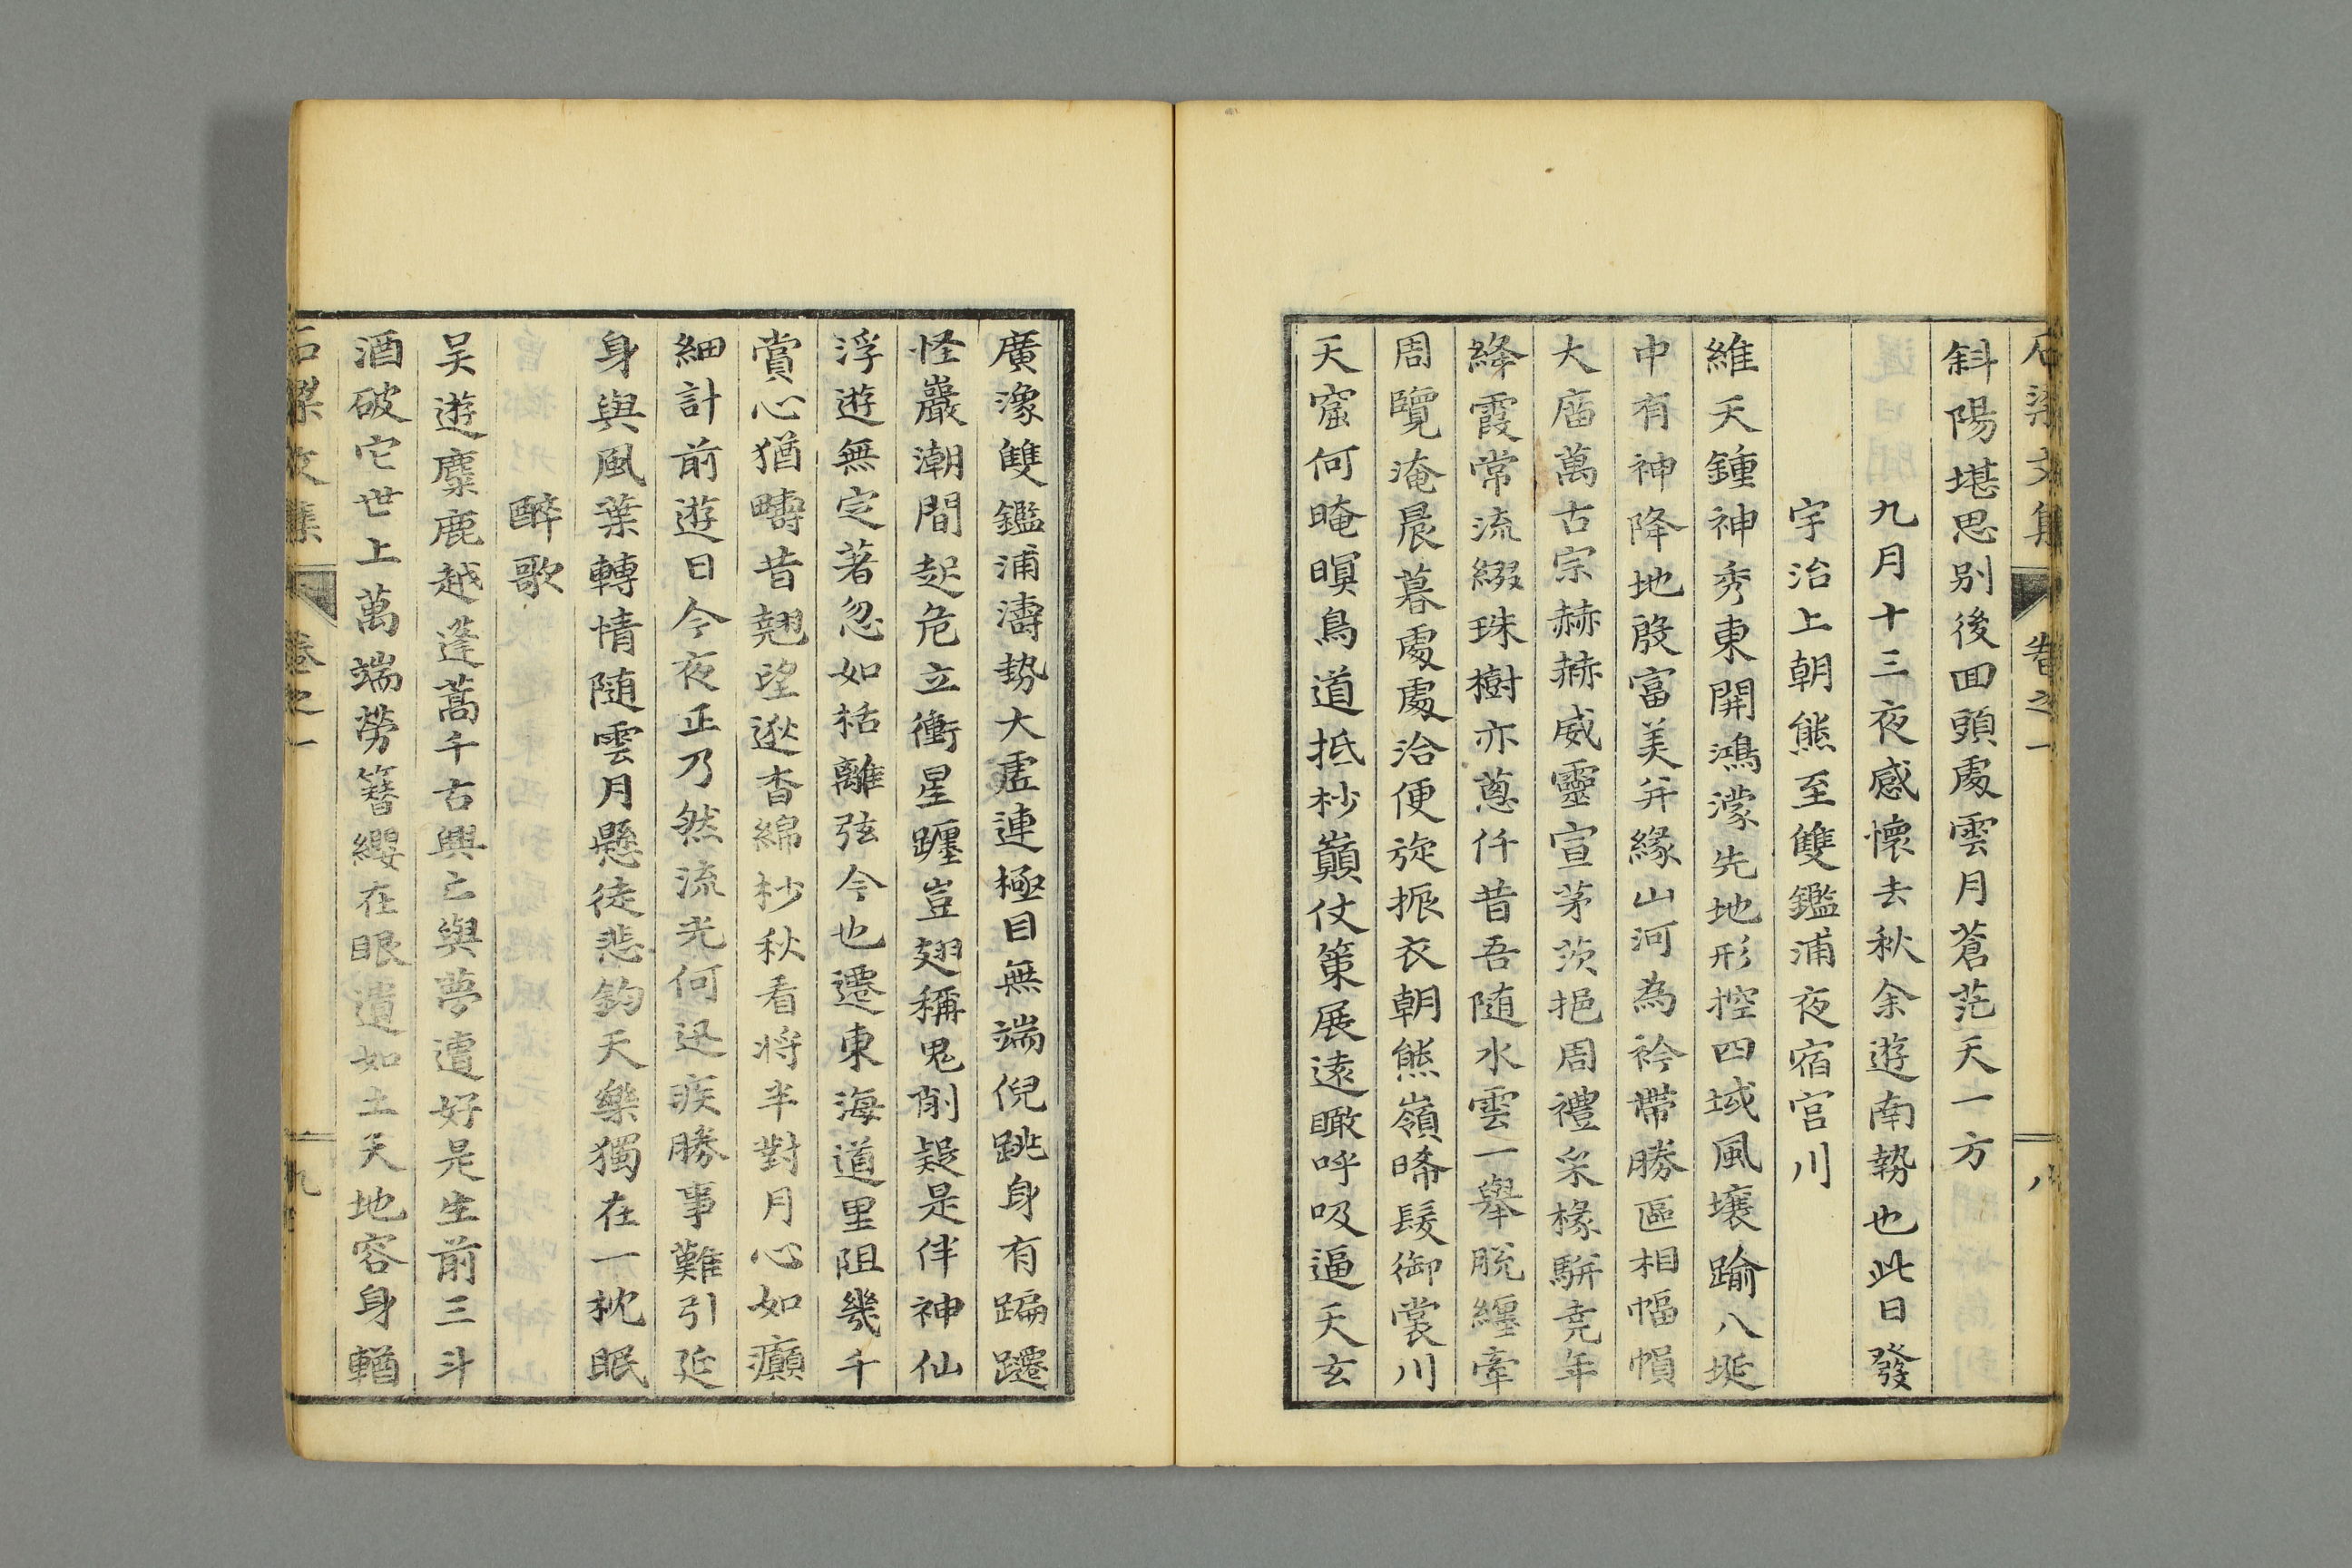 石梁文集 卷之一 八
斜陽堪思别後回頭處雲月蒼茫天一方
九月十三夜感懷去秋余遊南勢也此日發
宇治上朝熊至雙鑑浦夜宿宮川
維天鍾神秀東開鴻濛先地形控四域風壤踰八埏
中有神降地殷富美并緣山河為衿帶勝區相幅幀
大庿萬古宗赫赫威靈宣茅茨挹周禮采椽駢堯年
絳霞常流綴珠樹亦蔥仟昔吾隨水雲一舉脫纒牽
周覽淹晨暮處處洽便旋振衣朝熊嶺晞髮御裳川
天窟何晻暝鳥道抵杪巔仗策展遠瞰呼吸逼天玄
廣豫雙鑑浦濤勢大虛連極目無端倪跳身有蹁躚
怪巖潮間起危立衝星躔豈翅稱鬼削疑是伴神仙
浮遊無定著忽如栝離弦今也遷東海道里阻幾千
賞心猶疇昔翹望逖杳綿杪秋看將半對月心如癲
細計前遊日今夜正乃然流光何迅疾勝事難引延
身與風葉轉情隨雲月懸徒悲鈞天樂獨在一枕眠
醉歌
吴遊麋鹿越蓬蒿千古興亡與夢遭好是生前三斗
酒破它世上萬端勞簪纓在眼遺如土天地容身輶
石梁文集 卷之一 九